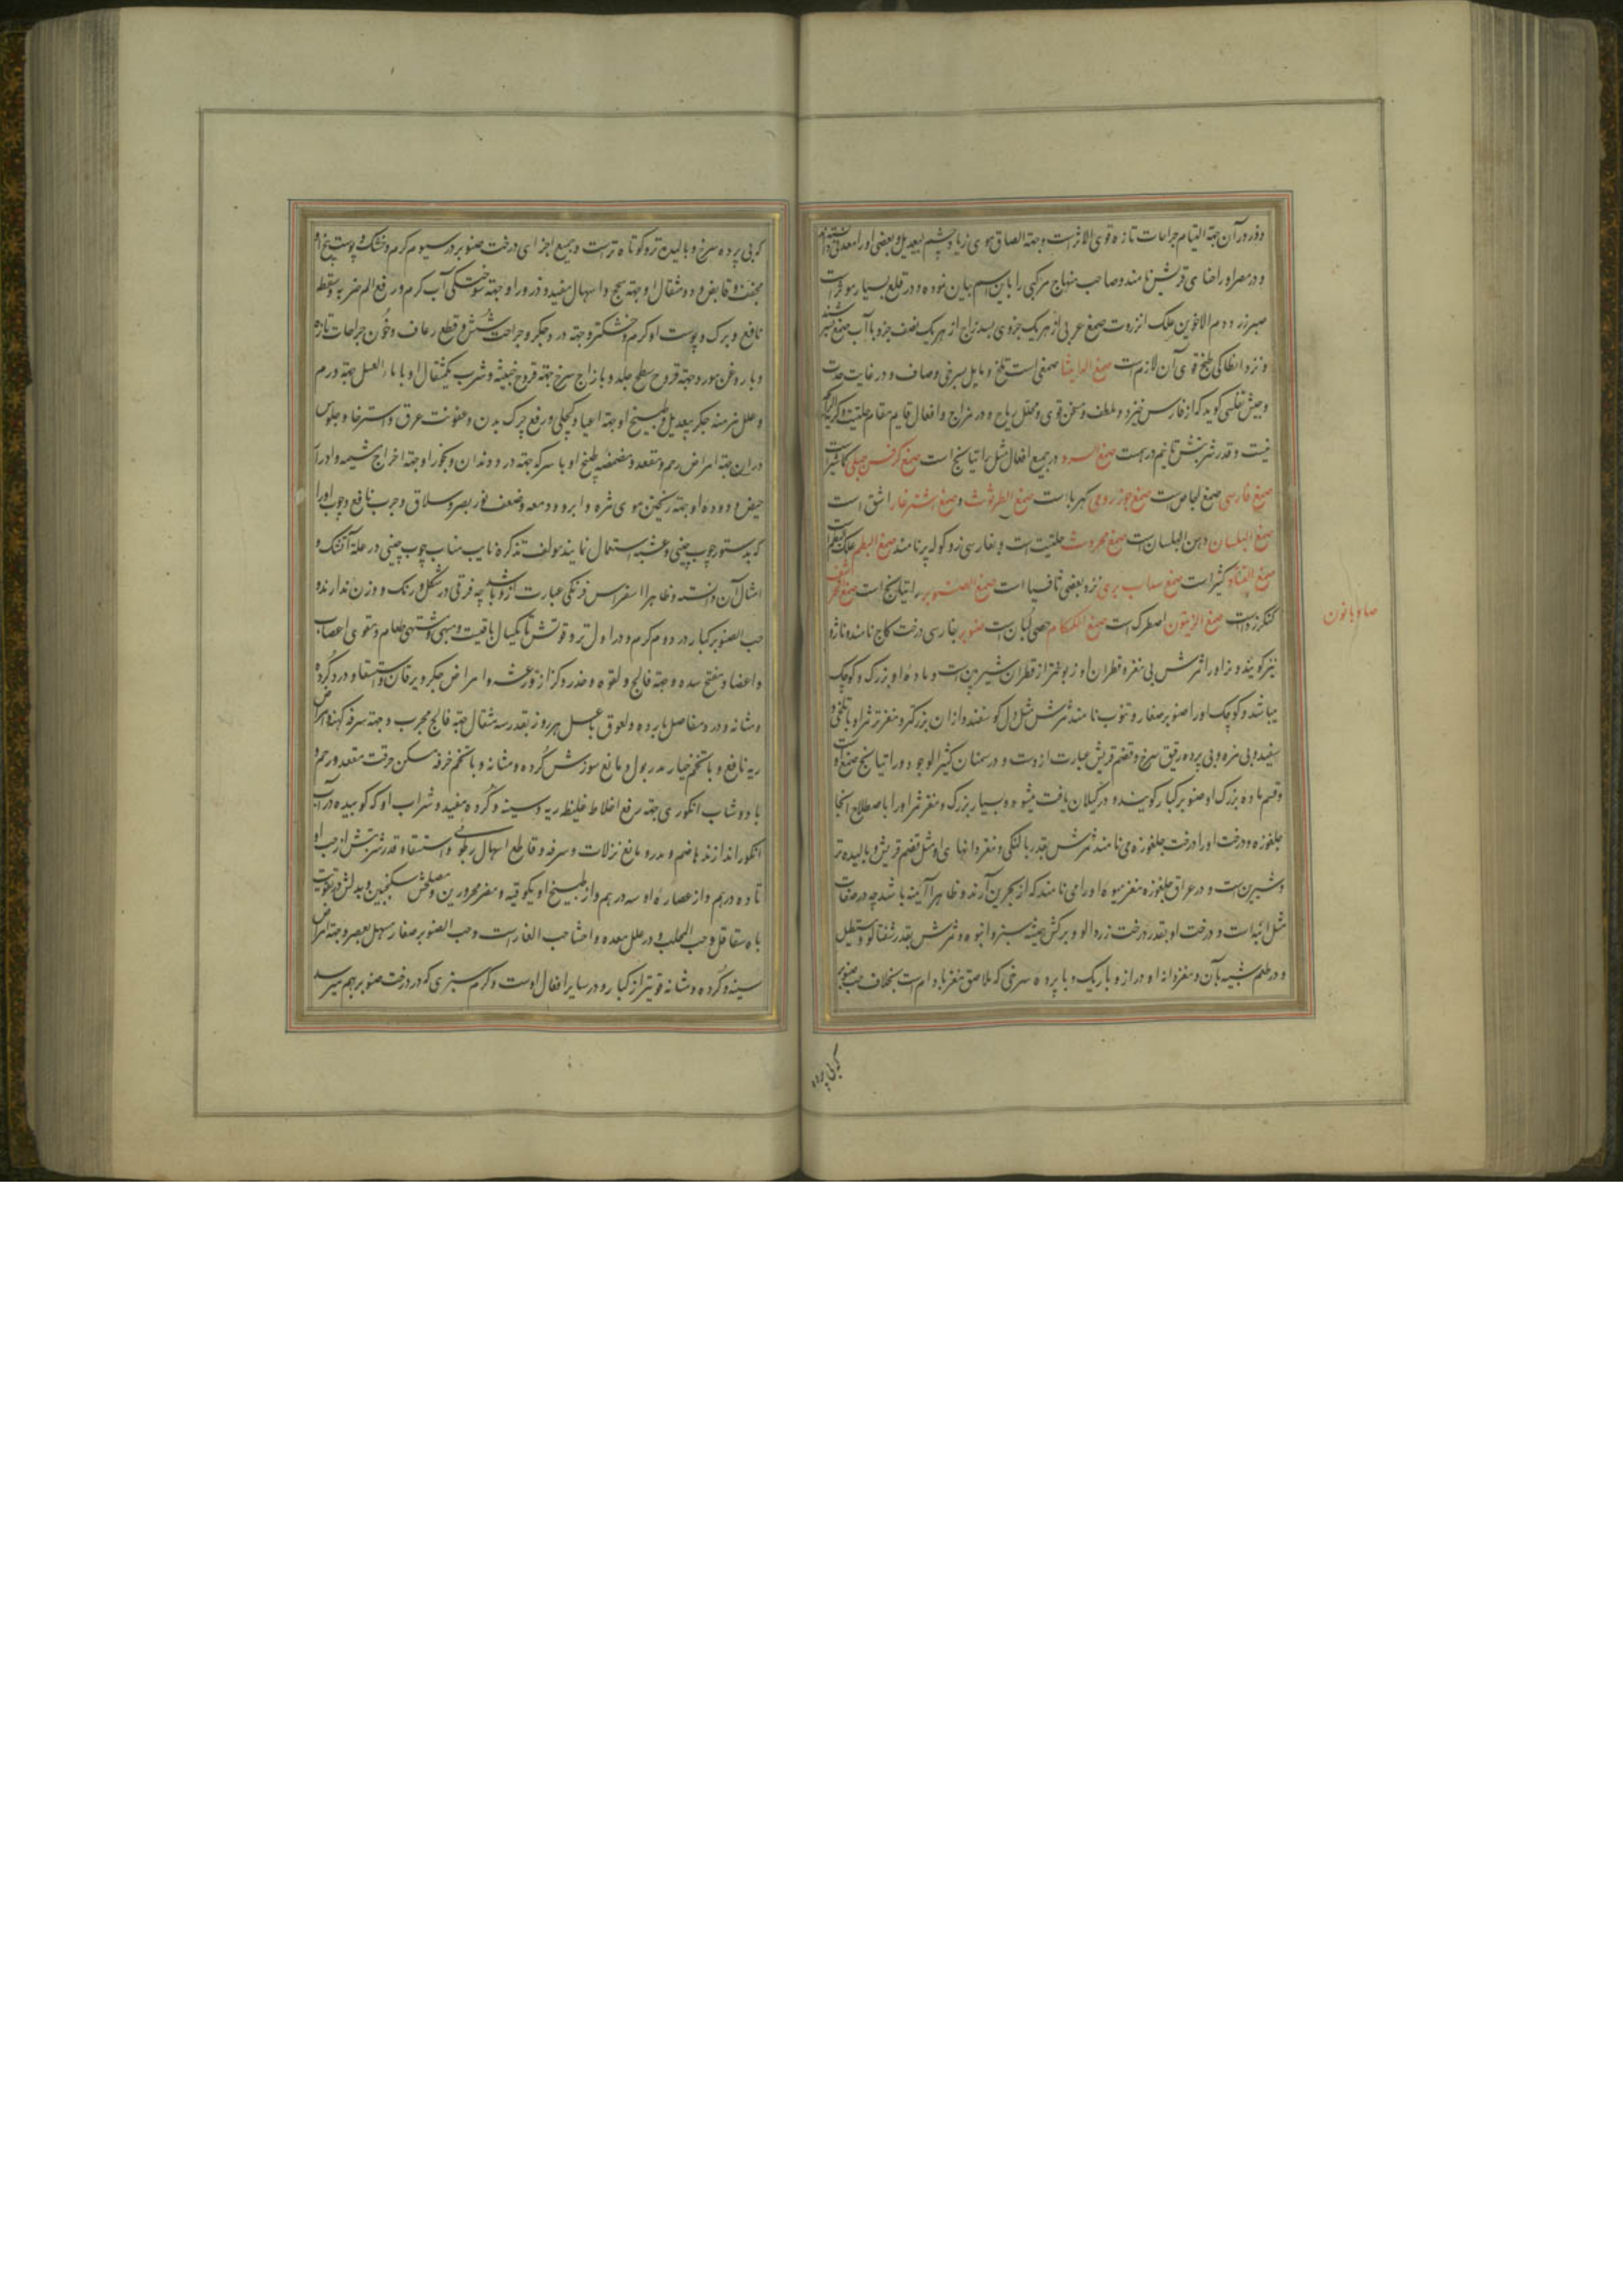 و ذرور آن جهة التیام جراحات تازه قوی الاثر است و جهة الصاق موی زیاد چشم بیعدیل و بعضی او را معدنی دانسته‌اند
و در مصر او را حنای قریش نامند و صاحب منهاج مرکبی را باین اسم بیان نموده و در قلع بسیار مؤثر است
صبر زرد دم الاخوین علک انزروت صمغ عربی از هر یک جزوی بسد زاج از هر یک نصف جزو با آب صمغ
و نزد انطاکی طبخ قوی آن لازم است صمغ الدامیثا صمغی است تلخ و مایل بسرخی و صاف و در غایت حدت
و حبیش تفلیسی گوید که از فارس خیزد و ملطف و مسخن قوی و محلل ریاح و در مزاج و افعال قایم مقام حلتیت و کریه الرایحه
نیست و قدر شربتش تا نیم درهم است صمغ السرو در جمیع افعال مثل راتیانج است صمغ کرفس جبلی کاشیر است
صمغ فارسی صمغ اجاص است صمغ جوز رومی کهرباء است صمغ الطرثوث و صمغ اشترغار اشق است
صمغ البلسان دهن البلسان است صمغ محروث حلتیت است و بفارسی زدو کوله پر نامند صمغ البطم علک البطم است
صمغ القتاد کثیرا است صمغ سداب بری نزد بعضی ثافسیا است صمغ الصنوبر راتیانج است صمغ
کنکرزد است صمغ الزیتون اصطرک است صمغ الکمکام حصی لبان است صنوبر بفارسی درخت کاج نامند و ناژو
نیز گویند و نر او را ثمرش بی مغز و قطران او زبونتر از قطران شیربین است و ماده او بزرک و کوچک
میباشد و کوچک او را صنوبر صغار و تنوب نامند ثمرش مثل دل گوسفند و از آن بزرگتر و مغز ثمر او با تلخی و
سفید و بی مزه و بی پرده رقیق سرخ و قضم قریش عبارت از دست و در سمنان کثیر الوجود و راتیانج صمغ او است
و قسم ماده بزرک او صنوبر کبار گویند و در گیلان یافت میشود و بسیار بزرک و مغز ثمر او را باصطلاح آنجا
جلغوزه و درخت او را درخت جلغوزه می نامند ثمرش بقدر بالنکی و مغز دانهای او مثل قضم قریش و بالیده تر
و شیرین است و در عراق جلغوزه مغز میوه او را می نامند که از بحرین آرند و ظاهرا آنبه باشد چه در صفات
مثل انبه است و درخت او بقدر درخت زردالو و برکش همیشه سبز و انبوه و ثمرش بقدر شفتالو و مستطیل
و در طعم شبیه بآن و مغز دانه او دراز و باریک و با پرده سرخی که ملاصق مغز بادام است بخلاف حب صنوبر
که بی پرده
صامونانون
که بی پرده سرخ و بالیده تر و کوتاه تر است و جمیع اجزای درخت صنوبر در سیوم گرم و خشک و پوست بیخ او
مجفف و قابض و دو مثقال او جهة سحج و اسهال مفید و ذرور او جهة سوختگی آب گرم و رفع الم ضربه و سقطه
نافع و برک و پوست او گرم و خشکتر و جهة درد جگر و جراحت شش و قطع رعاف و خون جراحات تازه
و با روغن مورد جهة قروح سطح جلد و با زاج سرخ جهة قروح خبیثه و شرب یکمثقال او با ماء العسل جهة ورم
و علل مزمنه جگر بیعدیل و طبیخ او جهة اعیا و کچلی و رفع چرک بدن و عفونت عرق و استرخاء و جلوس
در آن جهة امراض رحم و مقعد و مضمضه طبخ او با سرکه جهة درد دندان و بخور او جهة اخراج مشیمه و ادرار
حیض و دوده او جهة ریختن موی مژه و ابرو و دمعه و ضعف نور بصر و سلاق و جرب نافع و چوب او را
که بدستور چوب چینی و عشبه استعمال نمایند مولف تذکره نایب مناب چوب چینی در علة آتشک و
امثال آن دانسته و ظاهرا سقراس فرنگی عبارت از او باشد چه فرقی در شکل و رنک و وزن ندارند و
حب الصنوبر کبار در دوم گرم و در اول تر و قوتش تا یکسال باقیست و مبهی و مشتهی طعام و مقوی اعصاب
و اعضا و مفتح سده و جهة فالج و لقوه و خدر و کزاز و رعشه و امراض جگر و یرقان و استسقا و درد گرده
و مثانه و درد مفاصل بارده و لعوق با عسل هر روز بقدر سه مثقال جهة فالج مجرب و جهة سرفه کهنه و امراض
ریه نافع و با تخم خیار مدر بول و مانع سوزش گرده و مثانه و با تخم خرفه مسکن حرقت مقعد و رحم و
با دوشاب انگوری جهة رفع اخلاط غلیظه ریه و سینه و گرده مفید و شراب او که کوبیده در آب
انگور اندازند هاضم و مدر و مانع نزلات و سرفه و قاطع اسهال رطوبی و استسقا و قدر شربتش از حب او
تا ده درهم و از عصاره او سه درهم و از طبیخ او یکوقیه و مضر محرورین و مصلحش سکنجبین و بدلش در تقویت
باه شقاقل و حب المحلب و در علل معده و احشا حب الغار است و حب الصنوبر صغار سهل بعصر و جهة امراض
سینه و گرده و مثانه قویتر از کبار و در سایر افعال اوست و کرم سبزی که در درخت صنوبر بهم میرسد